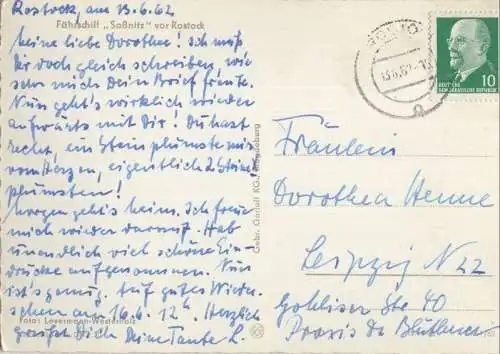 Rostock, am 13.6.62
Fährschiff „Saßnitz" vor Rostock
Meine liebe Dorothee! Ich muß
Dir doch gleich schreiben, wie
sehr mich Dein Brief freute.
Nun geht's wirklich wieder
aufwärts mit Dir! Du hast
recht, ein Stein plumste mir
vom Herzen, eigentlich 2 Steine
plumsten!
Morgen geht's heim. Ich freue
mich wieder darauf. Hab
unendlich viel schöne Ein-
drücke aufgenommen. Nun
ist's genug. Auf gutes Wieder-
sehen am 16.6. 12h. Herzlich
grüßt Dich Deine Tante L.
Foto: Levermann-Westerholz
Gebr. Garloff KG., Magdeburg
10
DEUTSCHE
DEMOKRATISCHE REPUBLIK
Fräulein
Dorothea Henne
Leipzig N 22
Gohliser Str 40
Praxis Dr.